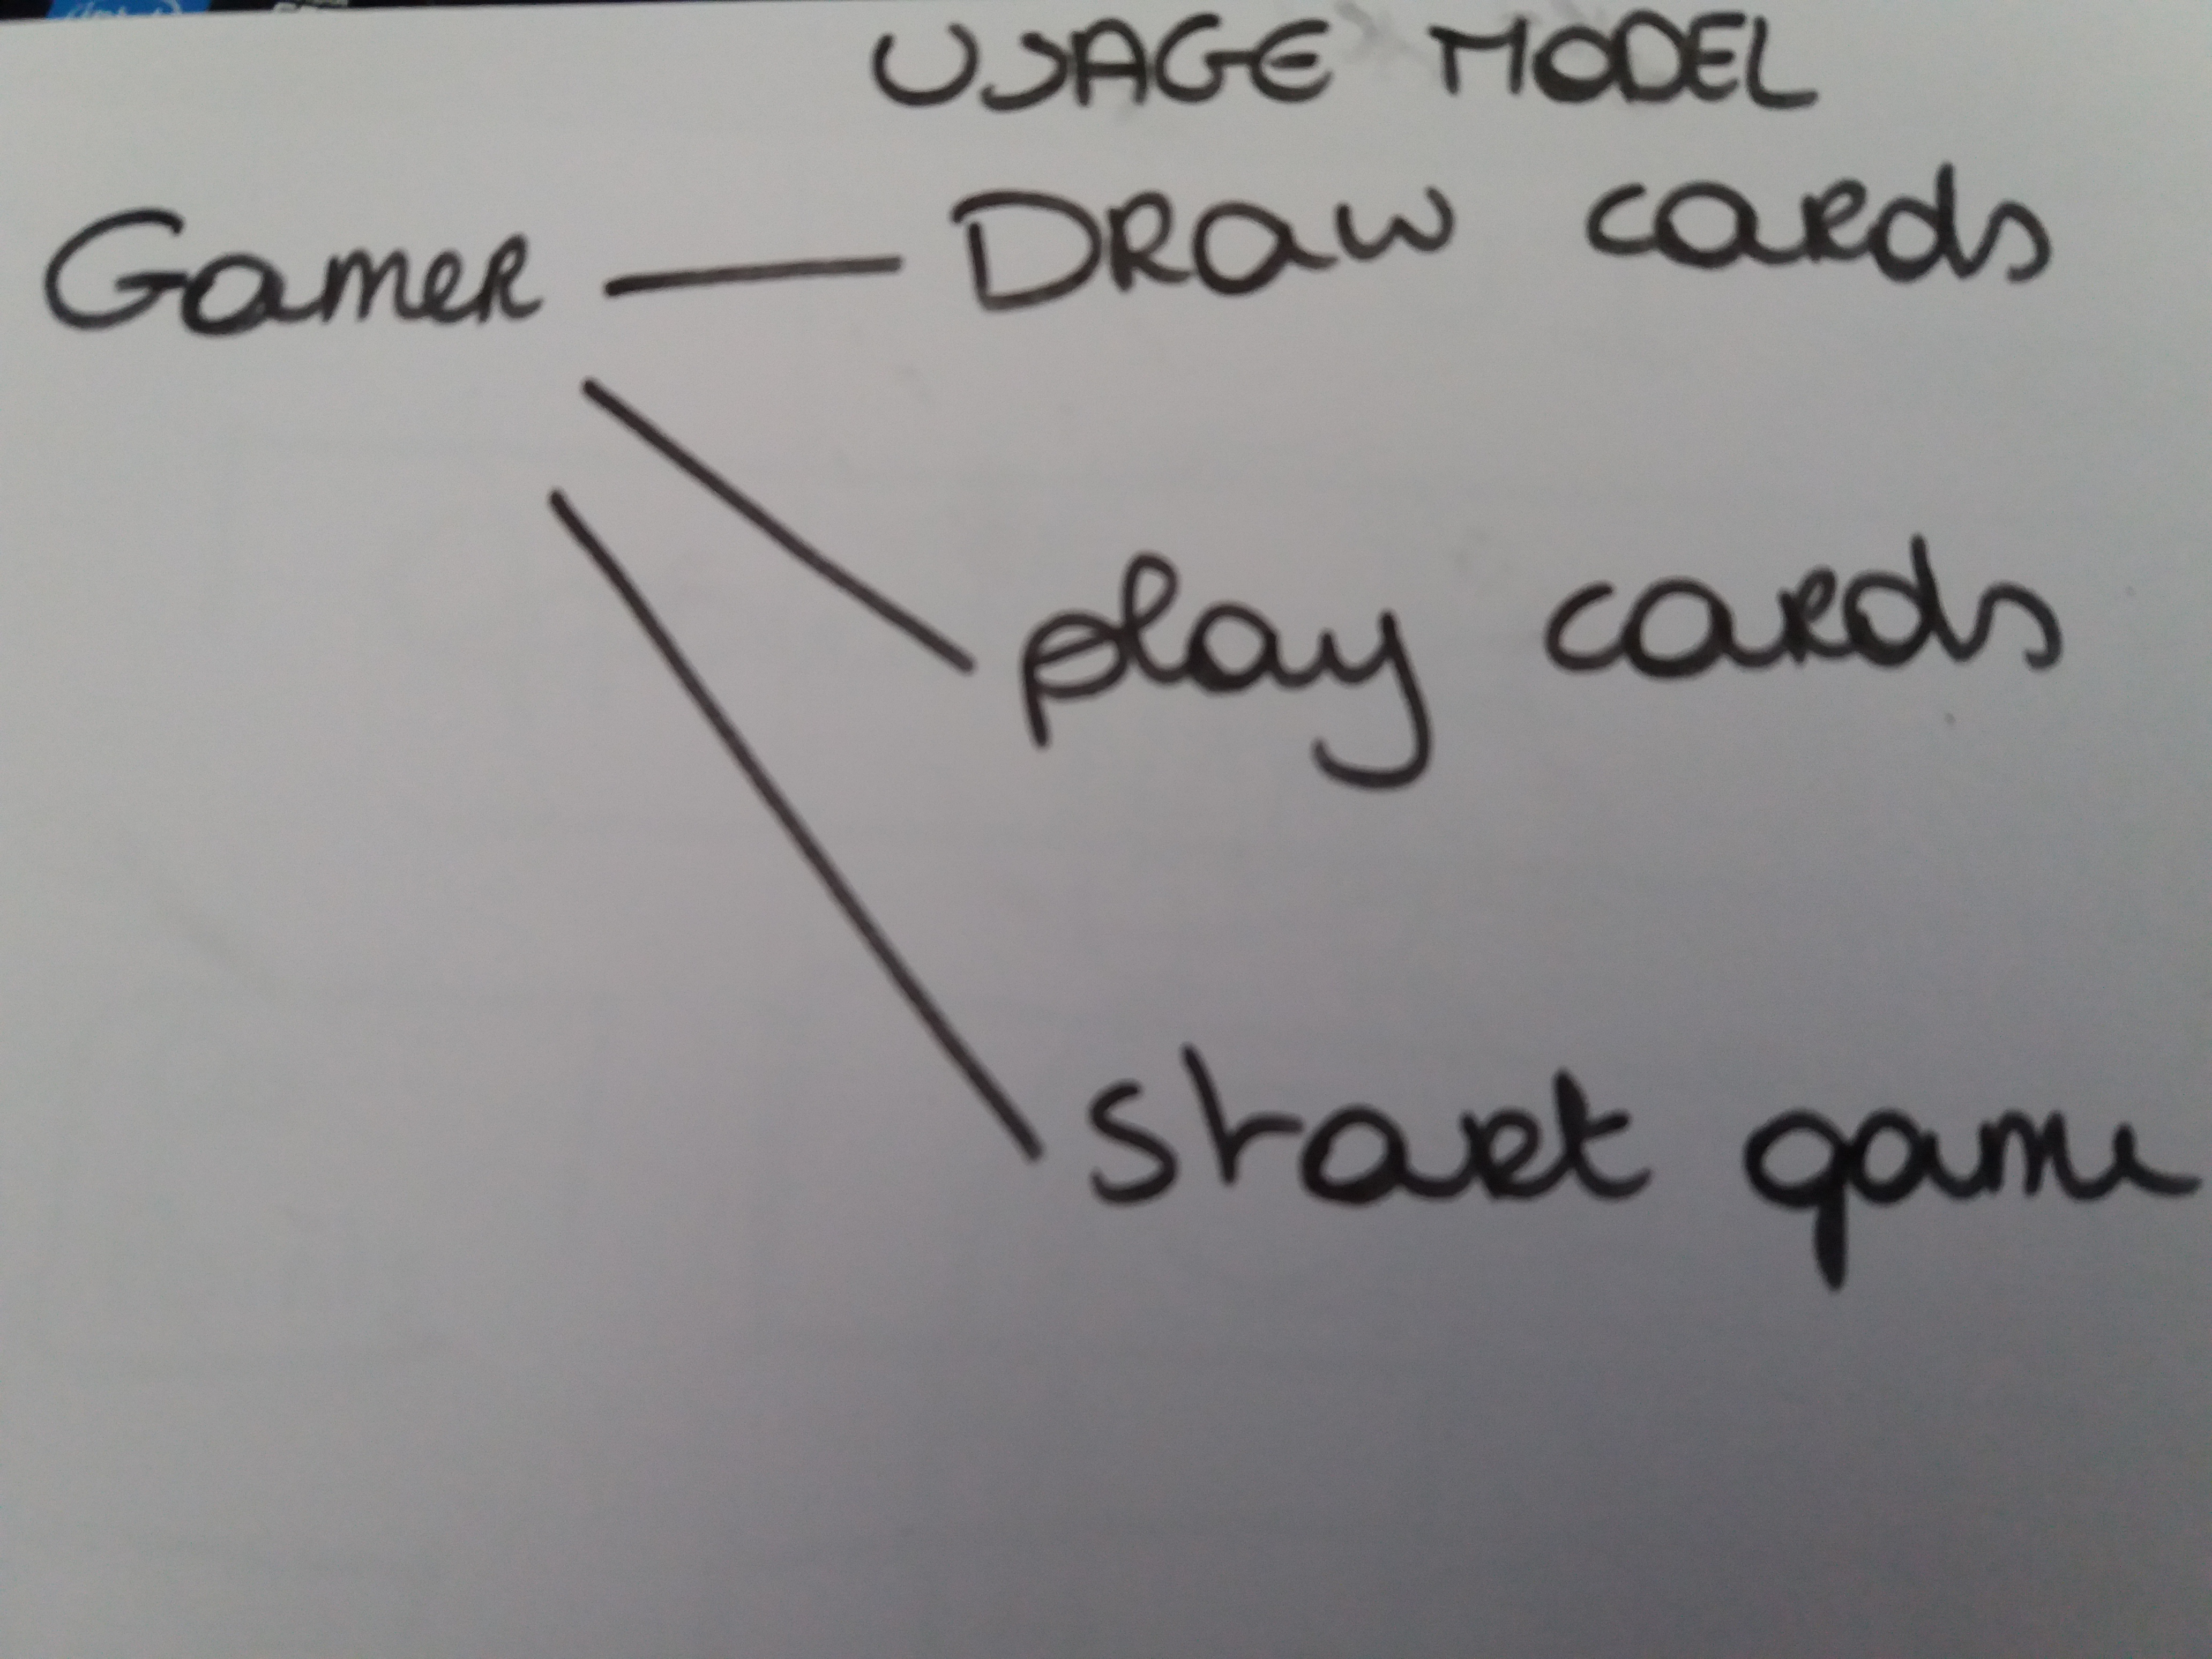 USAGE MODEL
Gamer — Draw cards
play cards
start game